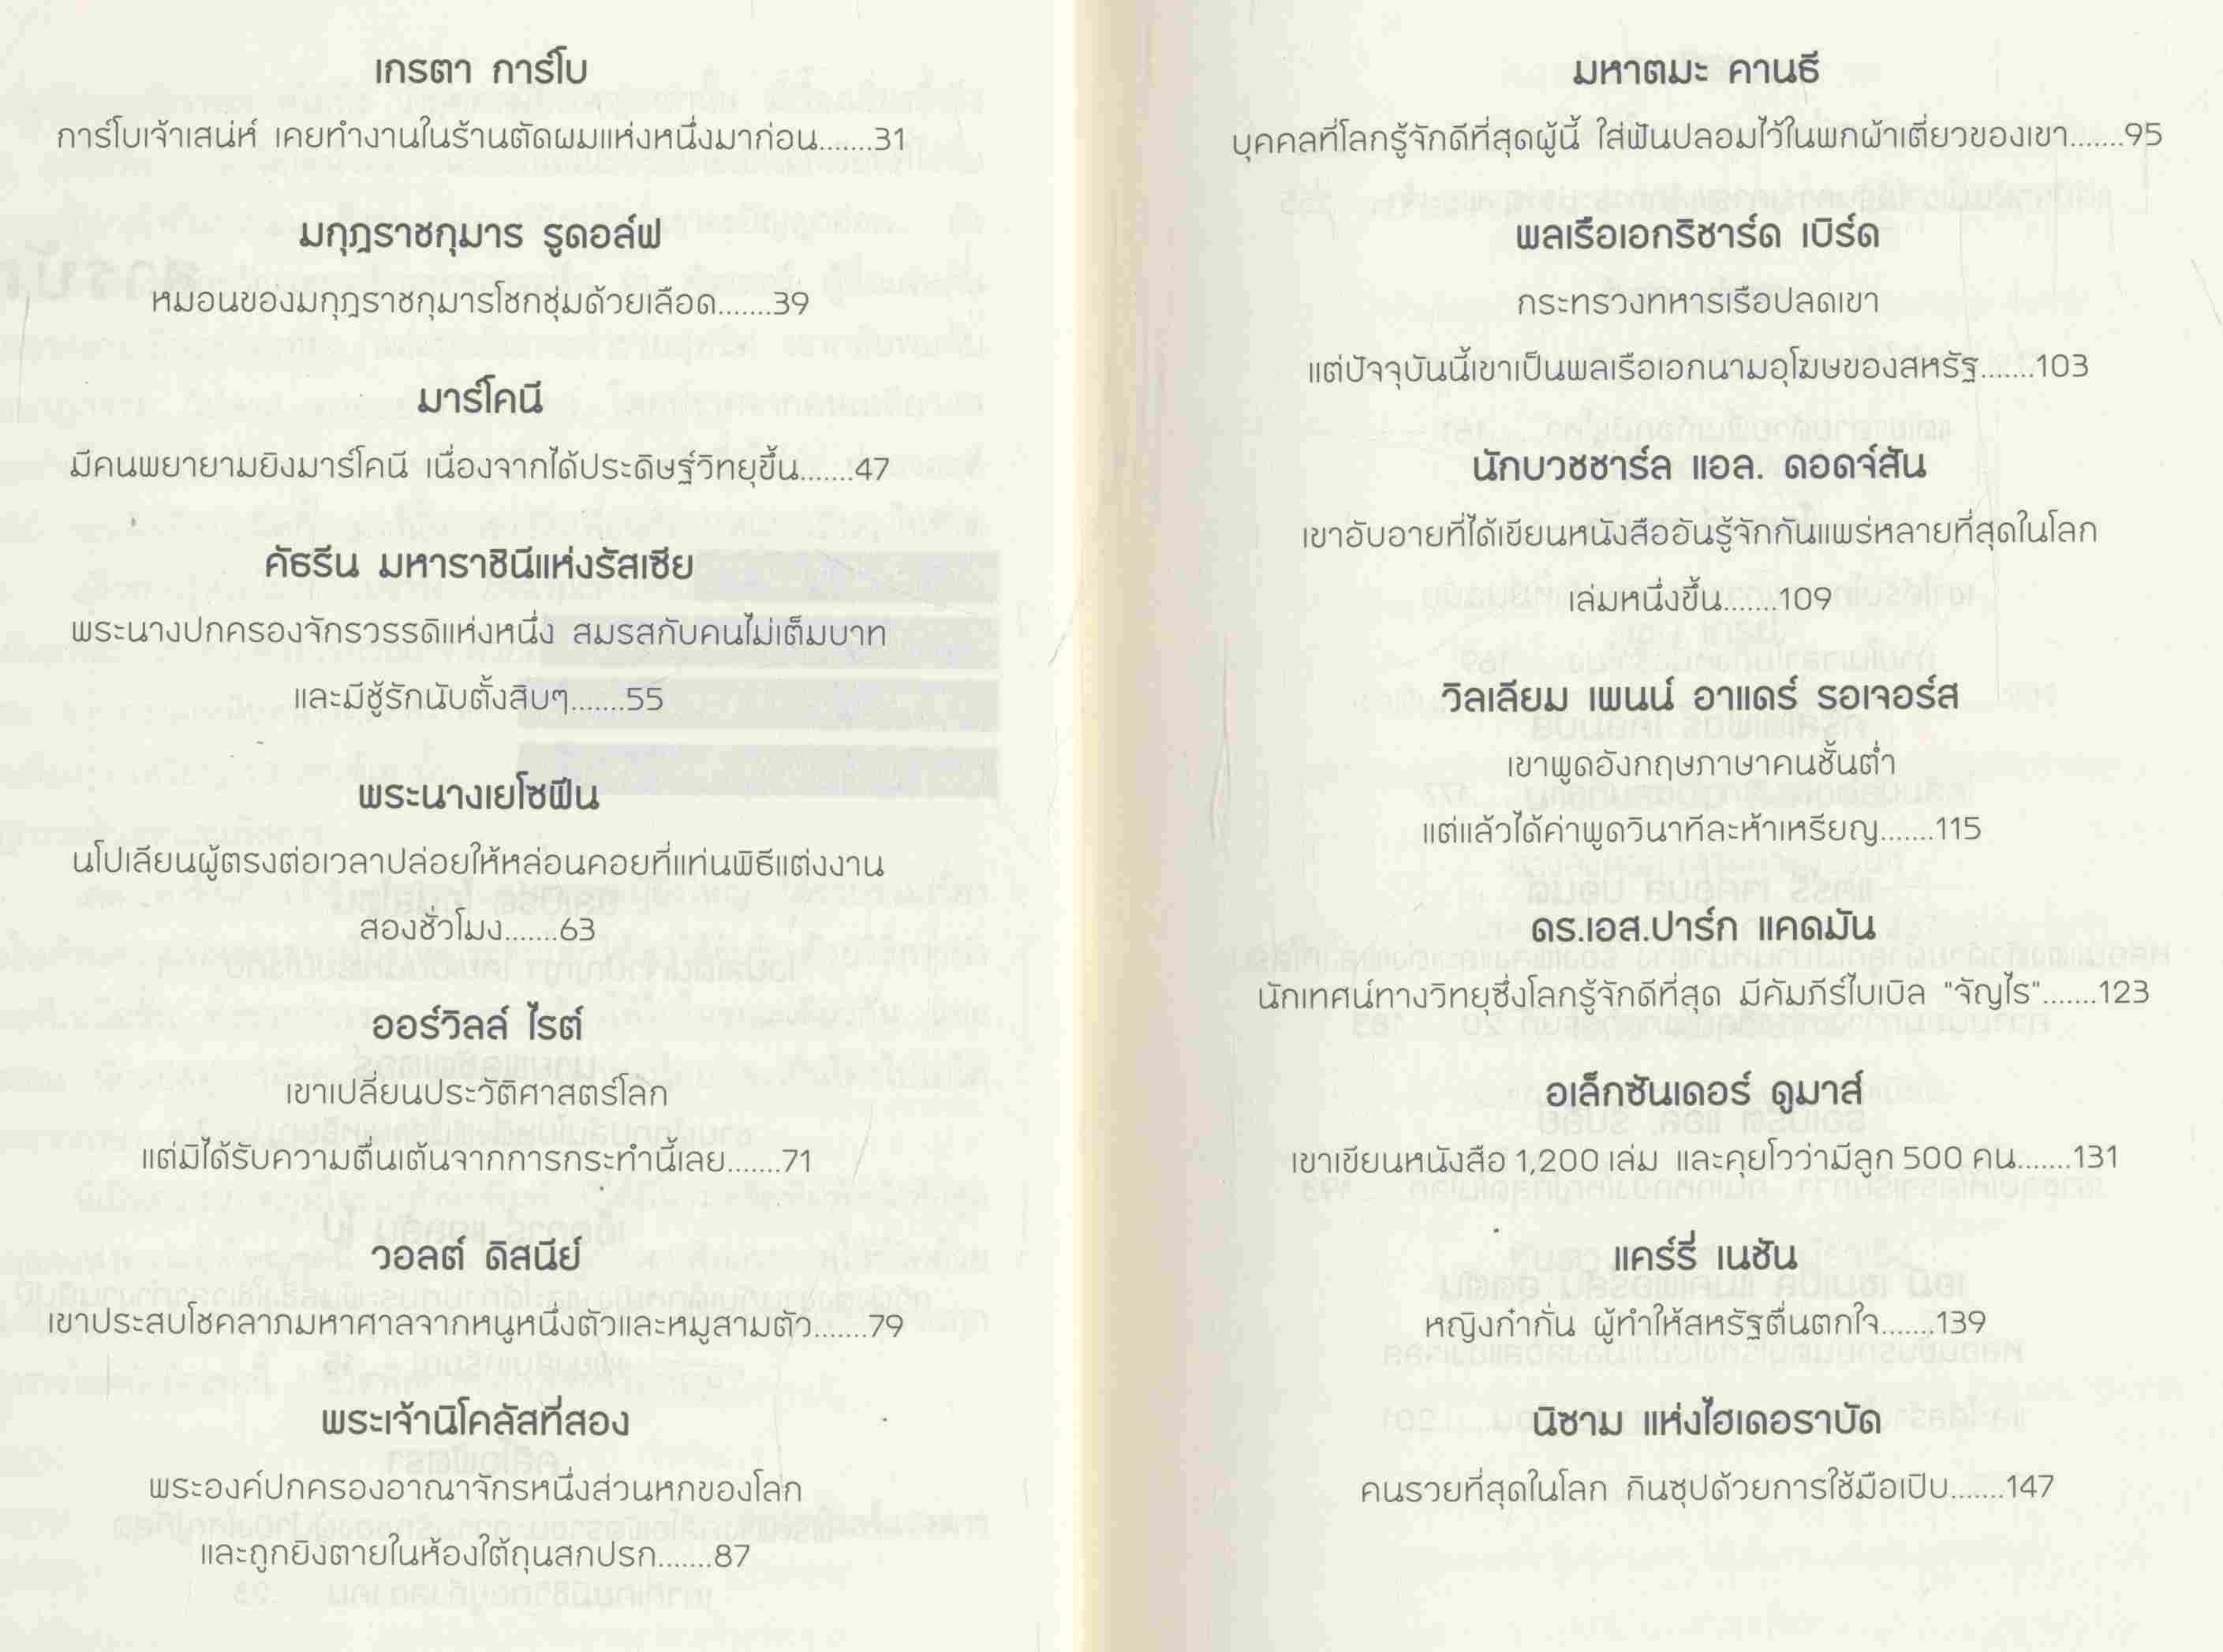 เกรตา การ์โบ
การ์โบเจ้าเสน่ห์ เคยทำงานในร้านตัดผมแห่งหนึ่งมาก่อน.......31
มกุฎราชกุมาร รูดอล์ฟ
หมอนของมกุฎราชกุมารโชกชุ่มด้วยเลือด.......39
มาร์โคนี
มีคนพยายามยิงมาร์โคนี เนื่องจากได้ประดิษฐ์วิทยุขึ้น.......47
คัธรีน มหาราชินีแห่งรัสเซีย
พระนางปกครองจักรวรรดิแห่งหนึ่ง สมรสกับคนไม่เต็มบาท
และมีชู้รักนับตั้งสิบๆ.......55
พระนางเยโซฟีน
นโปเลียนผู้ตรงต่อเวลาปล่อยให้หล่อนคอยที่แท่นพิธีแต่งงาน
สองชั่วโมง.......63
ออร์วิลล์ ไรต์
เขาเปลี่ยนประวัติศาสตร์โลก
แต่มิได้รับความตื่นเต้นจากการกระทำนี้เลย.......71
วอลต์ ดิสนีย์
เขาประสบโชคลาภมหาศาลจากหนูหนึ่งตัวและหมูสามตัว.......79
พระเจ้านิโคลัสที่สอง
พระองค์ปกครองอาณาจักรหนึ่งส่วนหกของโลก
และถูกยิงตายในห้องใต้ถุนสกปรก.......87
มหาตมะ คานธี
บุคคลที่โลกรู้จักดีที่สุดผู้นี้ ใส่ฟันปลอมไว้ในพกผ้าเตี่ยวของเขา.......95
พลเรือเอกริชาร์ด เบิร์ด
กระทรวงทหารเรือปลดเขา
แต่ปัจจุบันนี้เขาเป็นพลเรือเอกนามอุโฆษของสหรัฐ.......103
นักบวชชาร์ล แอล. ดอดจ์สัน
เขาอับอายที่ได้เขียนหนังสืออันรู้จักกันแพร่หลายที่สุดในโลก
เล่มหนึ่งขึ้น.......109
วิลเลียม เพนน์ อาแดร์ รอเจอร์ส
เขาพูดอังกฤษภาษาคนชั้นต่ำ
แต่แล้วได้ค่าพูดวินาทีละห้าเหรียญ.......115
ดร.เอส.ปาร์ก แคดมัน
นักเทศน์ทางวิทยุซึ่งโลกรู้จักดีที่สุด มีคัมภีร์ไบเบิล "จัญไร".......123
อเล็กซันเดอร์ ดูมาส์
เขาเขียนหนังสือ 1,200 เล่ม และคุยโวว่ามีลูก 500 คน.......131
แคร์รี่ เนชัน
หญิงก๋ากั่น ผู้ทำให้สหรัฐตื่นตกใจ.......139
นิซาม แห่งไฮเดอราบัด
คนรวยที่สุดในโลก กินซุปด้วยการใช้มือเปิบ.......147